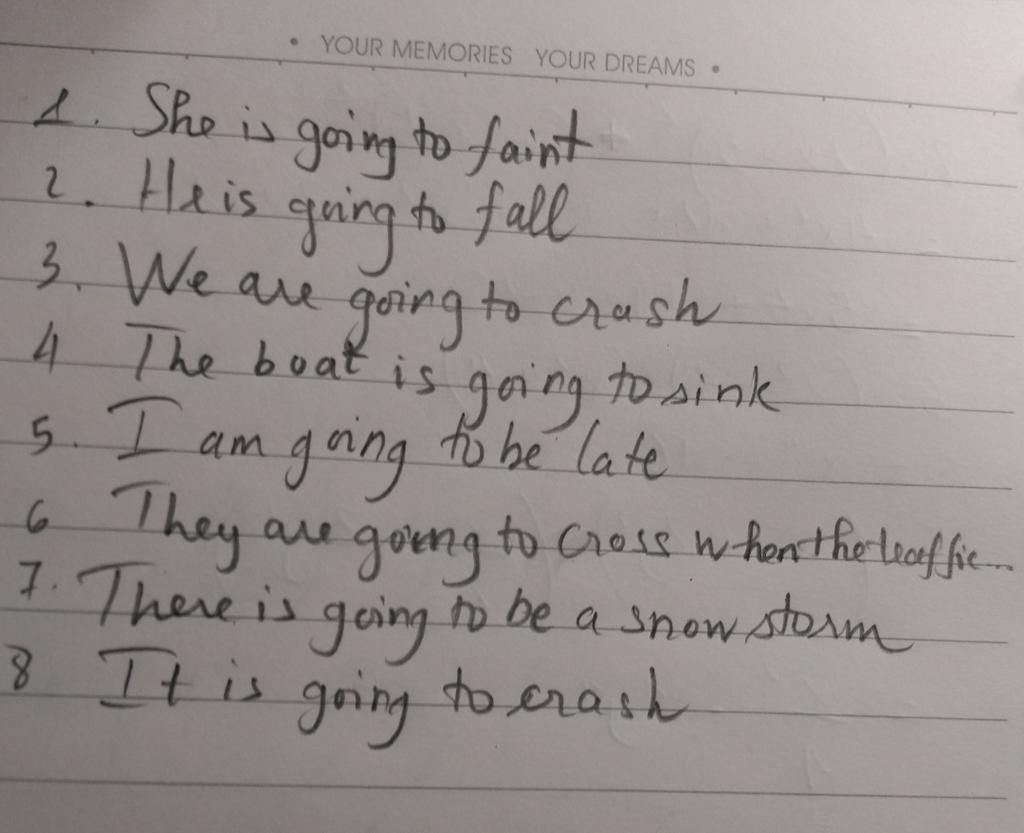 • YOUR MEMORIES YOUR DREAMS •
1. She is going to faint
2. He is going to fall
3. We are going to crash
4 The boat is going to sink
5. I am going to be late
6 They are going to cross when the traffic...
7. There is going to be a snow storm
8 It is going to crash